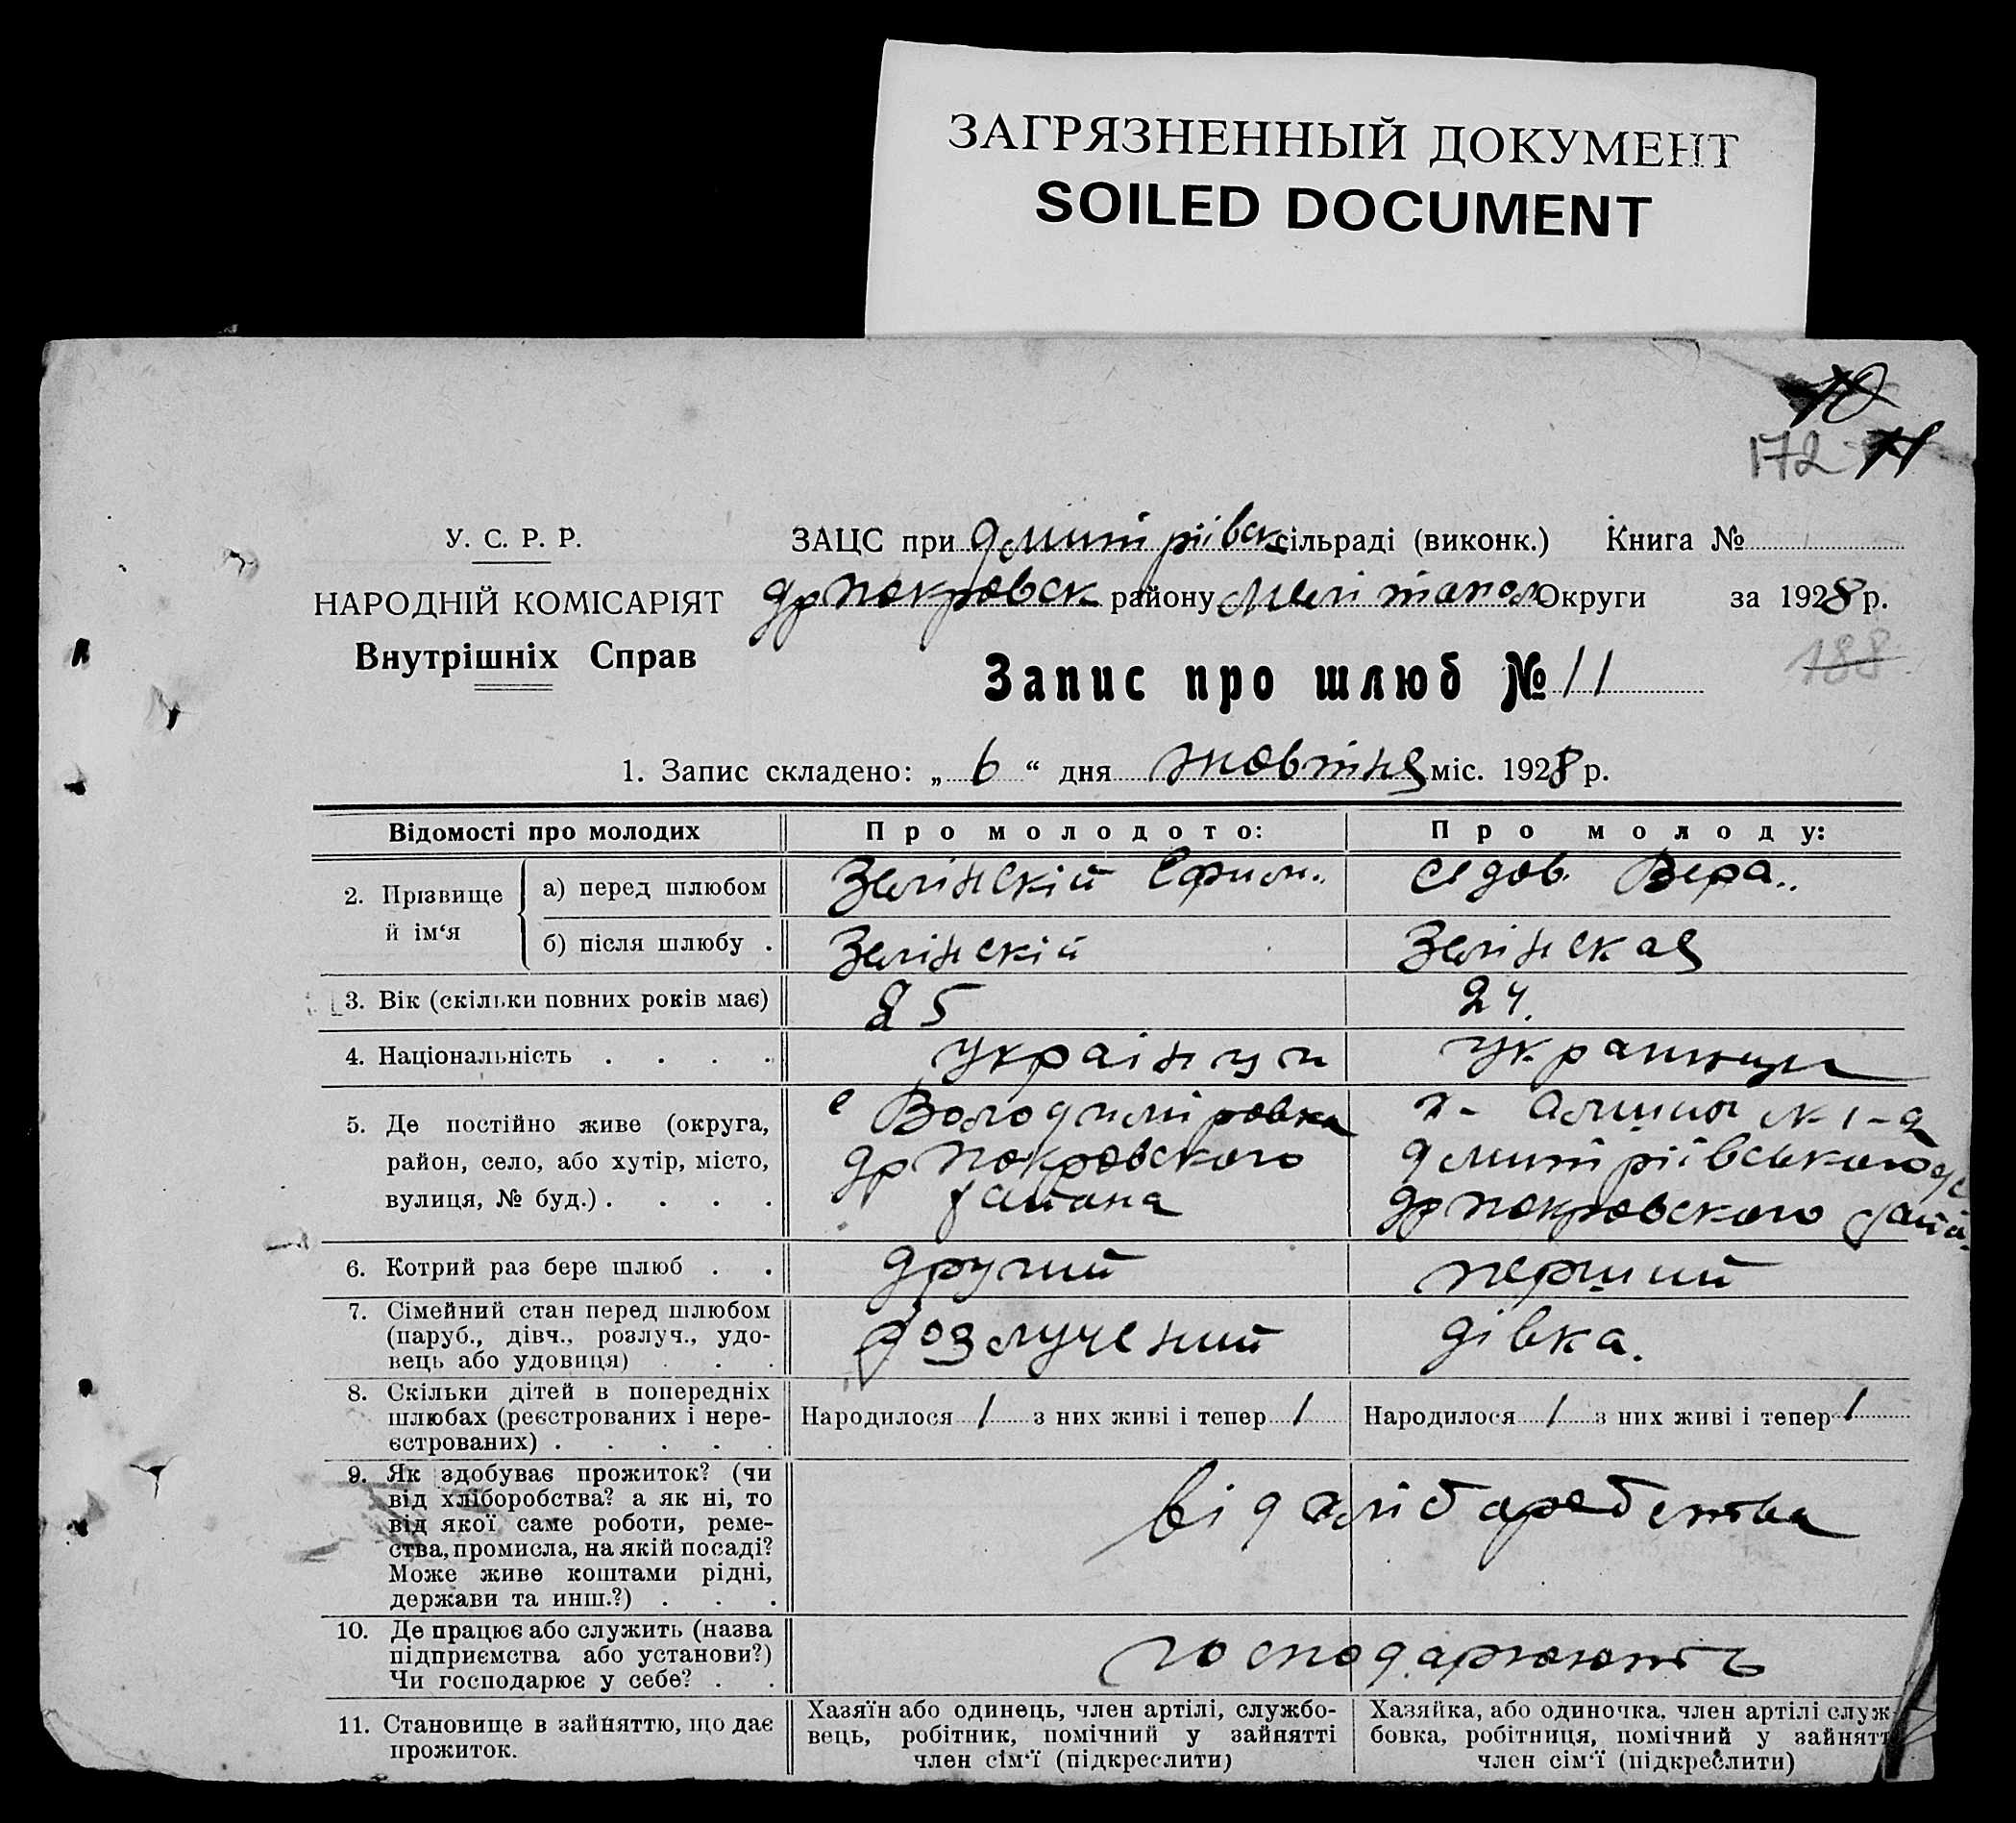 ЗАГРЯЗНЕННЫЙ ДОКУМЕНТ
SOILED DOCUMENT
10
172 11
У. С. Р. Р.
НАРОДНІЙ КОМІСАРІЯТ
Внутрішніх Справ
ЗАЦС при Дмитріївск сільраді (виконк.) Книга №
др покровск району Мелітопол Округи за 1928 р.
188
Запис про шлюб № 11
1. Запис складено: „ 6 “ дня жовтня міс. 1928 р.
Відомості про молодих
Про молодого:
Про молоду:
2. Прізвище й ім‘я
а) перед шлюбом
Зелінскій Ефим..
Седов. Вера..
б) після шлюбу .
Зелінскій
Зелінская
3. Вік (скільки повних років має)
25
24.
4. Національність . . . .
українци
украинци
5. Де постійно живе (округа,
район, село, або хутір, місто,
вулиця, № буд.) . . . .
с Володиміровка
др покровского
района
№ 1-2
Дмитріївського
др покровского рай
6. Котрий раз бере шлюб . .
другий
перший
7. Сімейний стан перед шлюбом
(паруб., дівч., розлуч., удо-
вець або удовиця) . . .
розлучений
дівка.
8. Скільки дітей в попередніх
шлюбах (реєстрованих і нере-
єстрованих) . . . . .
Народилося 1 з них живі і тепер 1
Народилося 1 з них живі і тепер 1
9. Як здобуває прожиток? (чи
від хліборобства? а як ні, то
від якої саме роботи, реме-
ства, промисла, на якій посаді?
Може живе коштами рідні,
держави та инш.?) . . .
від хлібаробства
10. Де працює або служить (назва
підприємства або установи?)
Чи господарює у себе? . .
господарюють
11. Становище в зайняттю, що дає
прожиток.
Хазяїн або одинець, член артілі, службо-
вець, робітник, помічний у зайнятті
член сім‘ї (підкреслити)
Хазяйка, або одиночка, член артілі служ-
бовка, робітниця, помічний у зайнятт
член сім‘ї (підкреслити)